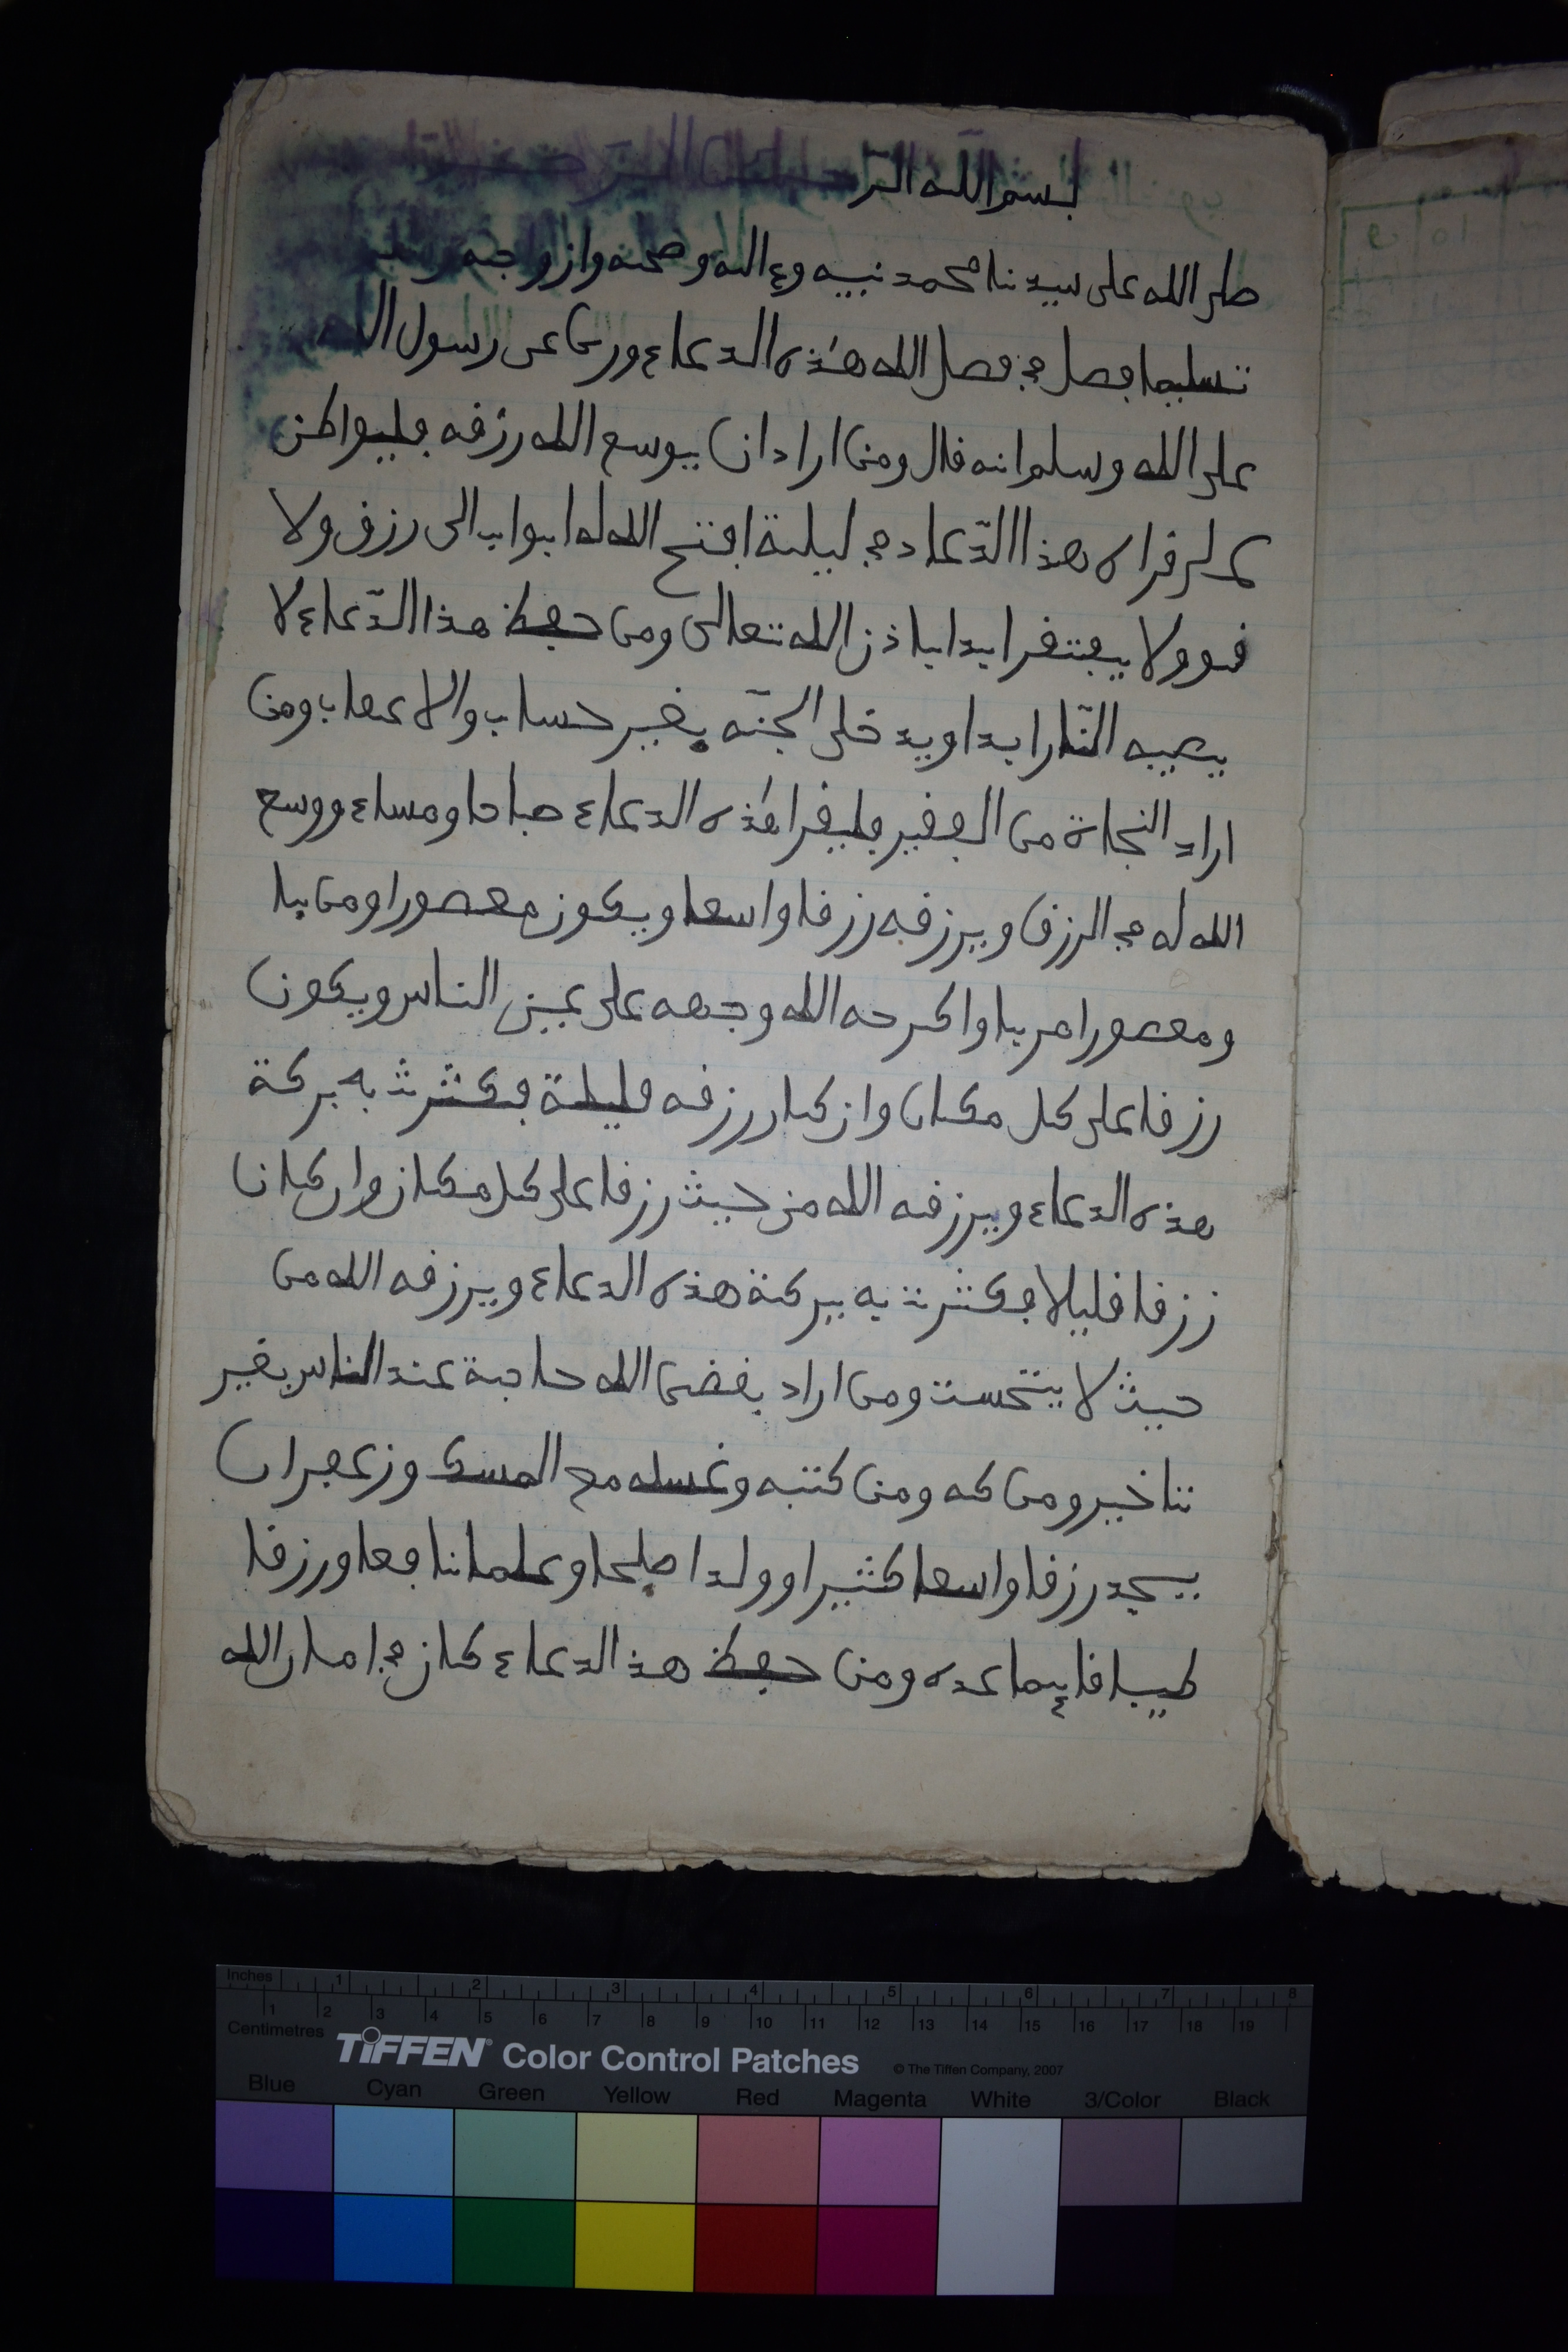 بسم الله الر
صلى الله على سيدنا محمد نبيه وعلى اله وصحبه وازواجه
تسليما فصل في فضل الله هذه الدعاء وروي عن رسول الله
صلى الله وسلم انه قال ومن اراد ان يوسع الله رزقه فليواظن
على قراه هذا الدّعاء في ليلة افتح الله له ابواب الى رزق ولا
قوولا يفتقر ابدا باذن الله تعالى ومن حفظ هذا الدّعاء لا
يصيبه النّار ابدا ويدخلى الجنّه بغير حساب والا عقاب ومن
اراد النجاة من الفقير فليقرا هذه الدعاء صباحا ومساء ووسع
الله له في الرزق ويرزقه رزقا واسعا ويكون معصورا ومن يا
ومعصورا مريا واكرحه الله وجهه على عين الناس ويكون
رزقا على كل مكان وان كان رزقه قليلة فكثرت به بركة
هذه الدعاء ويرزقه الله من حيث رزقا على كل مكان وان كانا
رزقا قليلا فكثرت به بركة هذه الدعاء ويرزقه الله من
حيث لا يتحست ومن اراد يقضى الله حاجة عند الناس بغير
تناخير ومن كه ومن كتبه وغسله مع المسك وزعفران
يجد رزقا واسعا كثيرا وولدا صلحا وعلما نافعا ورزقا
طيبا قايما عده ومن حفظ هذ الدعاء كان في امان الله
Inches 1 2 3 4 5 6 7 8
Centimetres 1 2 3 4 5 6 7 8 9 10 11 12 13 14 15 16 17 18 19
TIFFEN Color Control Patches © The Tiffen Company, 2007
Blue Cyan Green Yellow Red Magenta White 3/Color Black